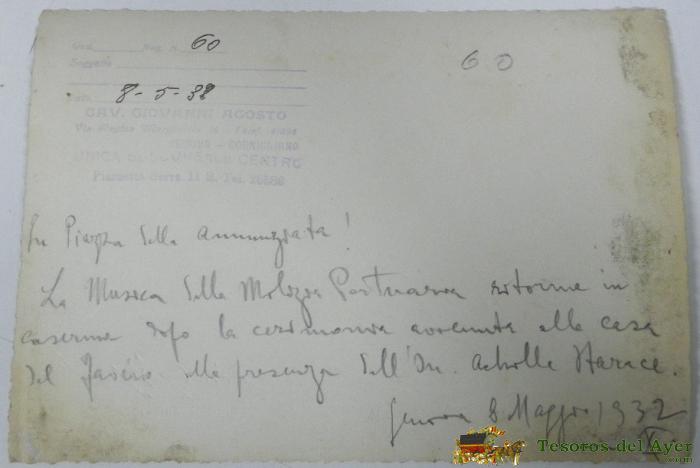 Neg. N. 60
60
Soggetto
8-5-32
CAV. GIOVANNI AGOSTO
GENOVA - CORNIGLIANO
UNICA SUCCURSALE CENTRO
Piazzetta Serra 11 R. Tel.
In Piazza della Annunziata!
La Musica della Milizia Portuaria ritorna in
caserma dopo la cerimonia avvenuta alla casa
del Fascio alla presenza dell'On. Achille Starace.
Genova 8 Maggio 1932
X
Tesoros del Ayer